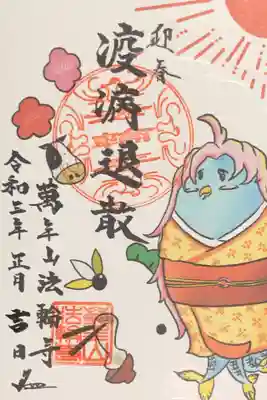 迎春
疫病退散
萬年山法輪寺
令和三年 正月 吉日